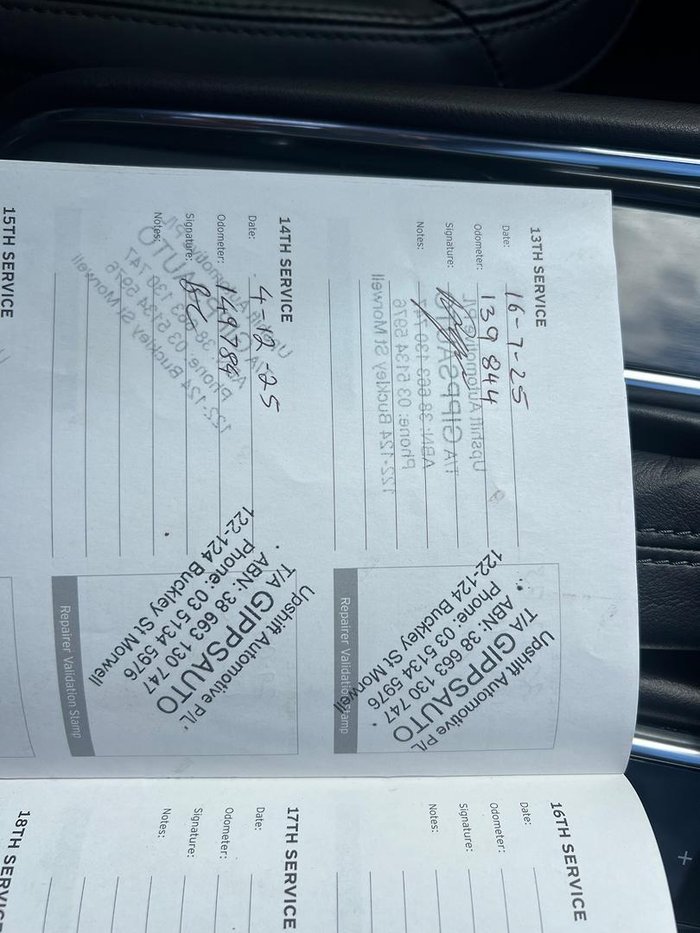 13TH SERVICE
Date: 16-7-25
Odometer: 139 844
Signature:
Notes:
Upshift Automotive P/L
T/A GIPPSAUTO
ABN: 38 663 130 747
Phone: 03 5134 5976
122-124 Buckley St Morwell
Repairer Validation Stamp
14TH SERVICE
Date: 4-12-25
Odometer: 149784
Signature:
Notes:
Upshift Automotive P/L
T/A GIPPSAUTO
ABN: 38 663 130 747
Phone: 03 5134 5976
122-124 Buckley St Morwell
Repairer Validation Stamp
15TH SERVICE
16TH SERVICE
Date:
Odometer:
Signature:
Notes:
17TH SERVICE
Date:
Odometer:
Signature:
Notes:
18TH SERVICE